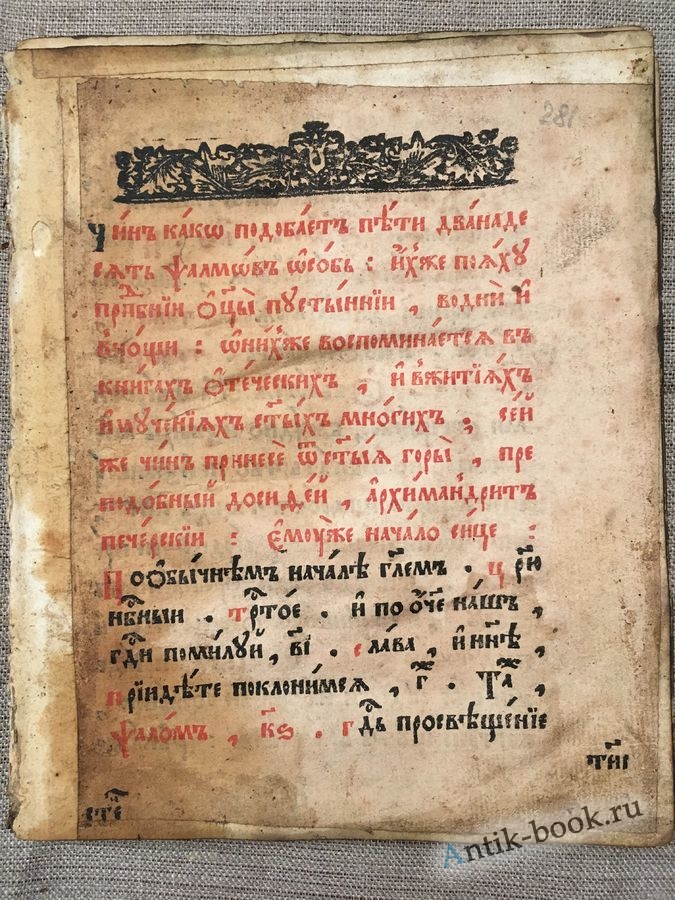 281
Чи́нъ ка́кѡ подоба́етъ пѣ́ти два́наде
сѧть ѱалмѡ́въ ѡ҆со́бь : и҆́хже поѧ́ху
прпⷣбнїи ѻ҆ц҃ы̀ пусты́ннїи , воднѝ и҆
вно́щи : ѡ҆ни́хже воспомина́етсѧ въ
кни́гахъ ѻ҆те́ческихъ , и҆ вжитїѧ́хъ
и҆ муче́нїѧхъ ст҃ы́хъ мно́гихъ , се́й
же чи́нъ принесѐ ѿст҃ы́ѧ горы̀ , пре
подо́бный досиѳе́й , а҆рхїмандри́тъ
пече́рскїи : Є҆моу́же нача́ло си́це :
Поѻ҆бы́чнѣмъ нача́лѣ гл҃емъ . цр҃ю
нбⷭ҇ныи . трⷭ҇то́е . и҆ по ѻ҆́ч҃е на́шъ ,
гдⷭ҇и поми́луй , в҃і . сла́ва , и҆ нн҃ѣ ,
прїиди́те поклони́мсѧ , г҃ . ѱⷣа ,
ѱало́мъ , к҃ѕ . гдⷭ҇ь просвѣще́нїе
ст҃е
Antik-book.ru